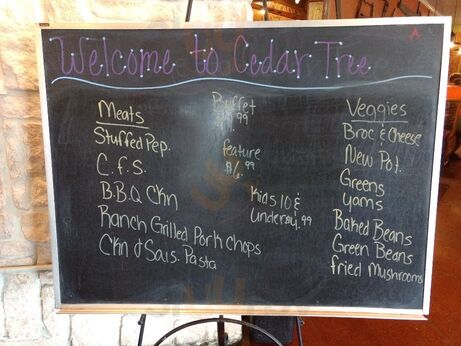 Welcome to Cedar Tree
Meats
Stuffed Pep.
C.f.S.
B.B.Q Ckn
Ranch Grilled Pork Chops
Ckn & Saus. Pasta
Buffet
feature
$6.99
Kids 10 &
under $4.99
Veggies
Broc & Cheese
New Pot.
Greens
yams
Baked Beans
Green Beans
fried Mushrooms